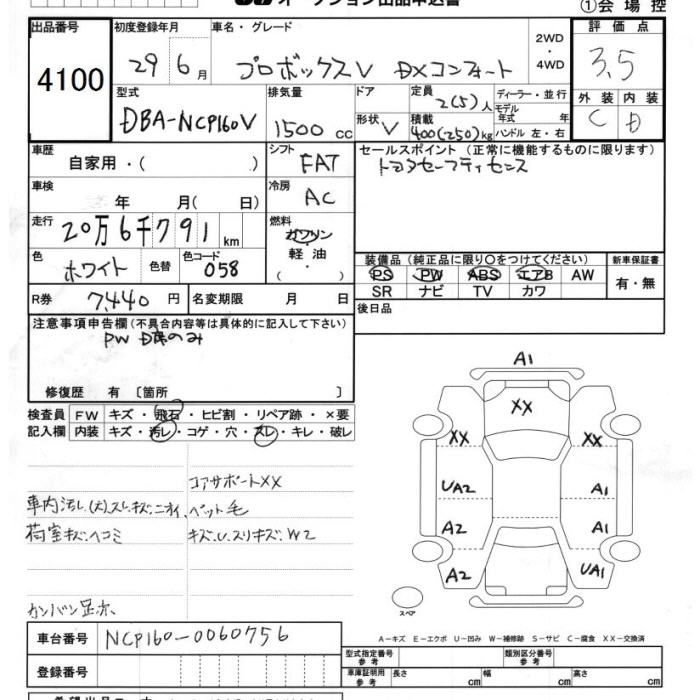 オークション出品申込書
①会場控
出品番号
4100
初度登録年月
29 6月
車名・グレード
プロボックスV DXコンフォート
2WD・4WD
評価点
3.5
外装 内装
C D
型式
DBA-NCP160V
排気量
1500 cc
ドア
形状 V
定員
2(5)人
積載
400(250)kg
ディーラー・並行
モデル年式 年
ハンドル 左・右
車歴
自家用・( )
シフト
FAT
車検
年 月( 日)
冷房
AC
走行
20万6千791 km
燃料
ガソリン
軽油
・
( )
色
ホワイト
色替
色コード
058
R券
7,440 円
名変期限 月 日
セールスポイント(正常に機能するものに限ります)
トヨタセーフティセンス
装備品(純正品に限り〇をつけてください)
新車保証書
PS PW ABS エアB AW
SR ナビ TV カワ
有・無
後日品
注意事項申告欄(不具合内容等は具体的に記入して下さい)
修復歴 有〔箇所 〕
検査員記入欄
FW キズ・飛石・ヒビ割・リペア跡・×要
内装 キズ・汚レ・コゲ・穴・スレ・キレ・破レ
コアサポートXX
車内汚レ(大)スレキズ、ニオイ、ペット毛
荷室キズ、ヘコミ
キズ、U、スリキズ、W2
カンバン
A1
XX
XX XX
UA2 A1
A2 A1
A2 UA1
スペア
A-キズ E-エクボ U-凹み W-補修跡 S-サビ C-腐食 XX-交換済
車台番号
NCP160-0060756
登録番号
型式指定番号 参考
類別区分番号 参考
車庫証明用 参考
長さ cm
幅 cm
高さ cm